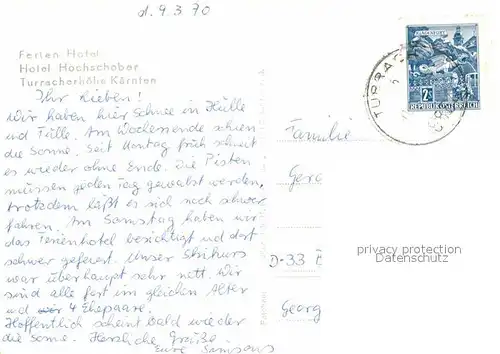 d. 9.3.70
Ferien Hotel
Hotel Hochschober
Turracherhöhe Kärnten
Ihr Lieben!
Wir haben hier Schnee in Hülle
und Fülle. Am Wochenende schien
die Sonne. Seit Montag früh schneit
es wieder ohne Ende. Die Pisten
müssen jeden Tag gewalzt werden,
trotzdem läßt es sich noch schwer
fahren. Am Samstag haben wir
das Ferienhotel besichtigt und dort
schwer gefeiert. Unser Skikurs
war überhaupt sehr nett. Wir
sind alle fast im gleichen Alter
und 4 Ehepaare.
Hoffentlich scheint bald wieder
die Sonne. Herzliche Grüße
Eure
Familie
Georg
D-33
Georg
TURRACH
KLAGENFURT
2 S
REPUBLIK ÖSTERREICH
privacy protection
Datenschutz